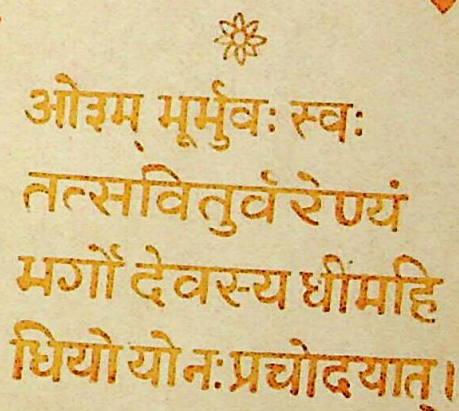 ओ३म् भूर्भुवः स्वः
तत्सवितुर्वरेण्यं
भर्गो देवस्य धीमहि
धियो यो नः प्रचोदयात्।